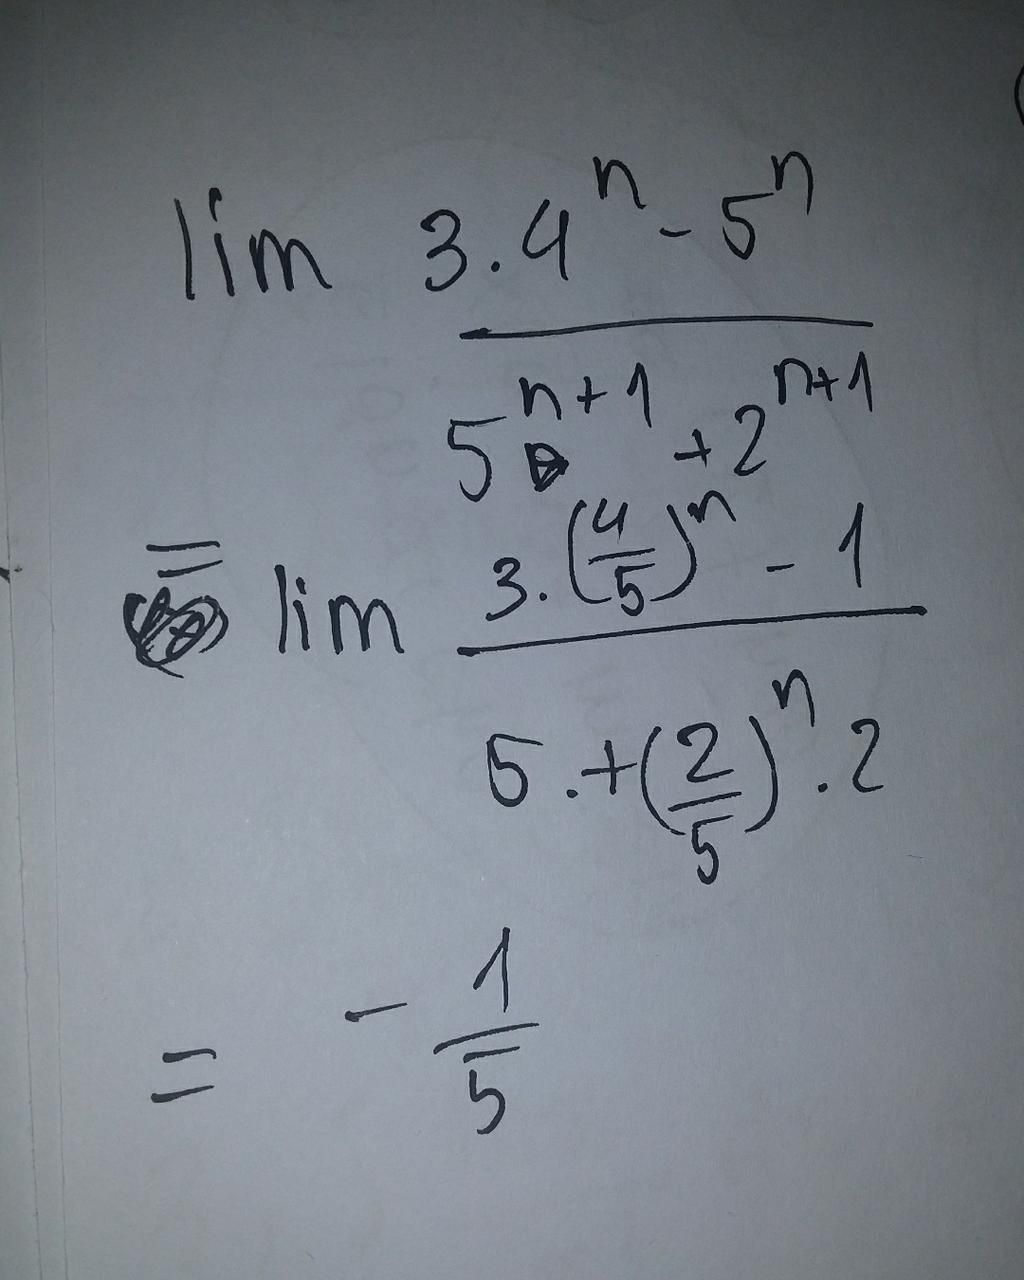 lim 3.4^n - 5^n
5^{n+1} + 2^{n+1}
=
lim 3.(4/5)^n - 1
5.+(2/5)^n.2
= - 1/5